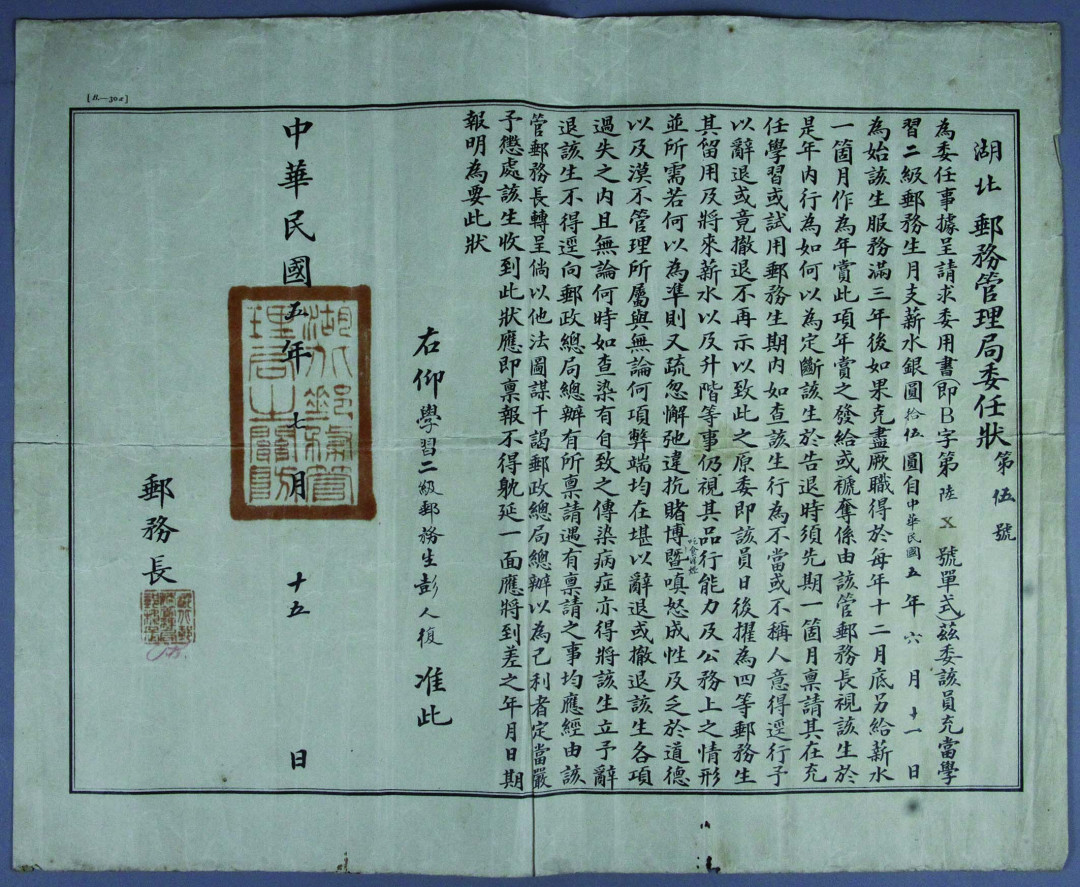 [B.—30a]
湖北郵務管理局委任狀第伍號
為委任事據呈請求委用書(即B字第陸X號單式)茲委該員充當學
習二級郵務生月支薪水銀圓拾伍圓自中華民國五年六月十一日
為始該生服務滿三年後如果克盡厥職得於每年十二月底另給薪水
一箇月作為年賞此項年賞之發給或褫奪係由該管郵務長視該生於
是年內行為如何以為定斷該生於告退時須先期一箇月稟請其在充
任學習或試用郵務生期內如查該生行為不當或不稱人意得逕行予
以辭退或竟撤退不再示以致此之原委即該員日後擢為四等郵務生
其留用及將來薪水以及升階等事仍視其品行能力及公務上之情形
並所需若何以為準則又疏忽懈弛違抗賭博吃食鴉片暨嗔怒成性及乏於道德
以及漠不管理所屬與無論何項弊端均在堪以辭退或撤退該生各項
過失之內且無論何時如查染有自致之傳染病症亦得將該生立予辭
退該生不得逕向郵政總局總辦有所稟請遇有稟請之事均應經由該
管郵務長轉呈倘以他法圖謀干謁郵政總局總辦以為己利者定當嚴
予懲處該生收到此狀應即稟報不得躭延一面應將到差之年月日期
報明為要此狀
右仰學習二級郵務生彭人復准此
中華民國五年七月十五日
湖北郵務管理局之關防
郵務長